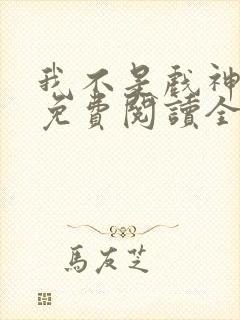 我不是戲神
免費閱讀全
馬友芝